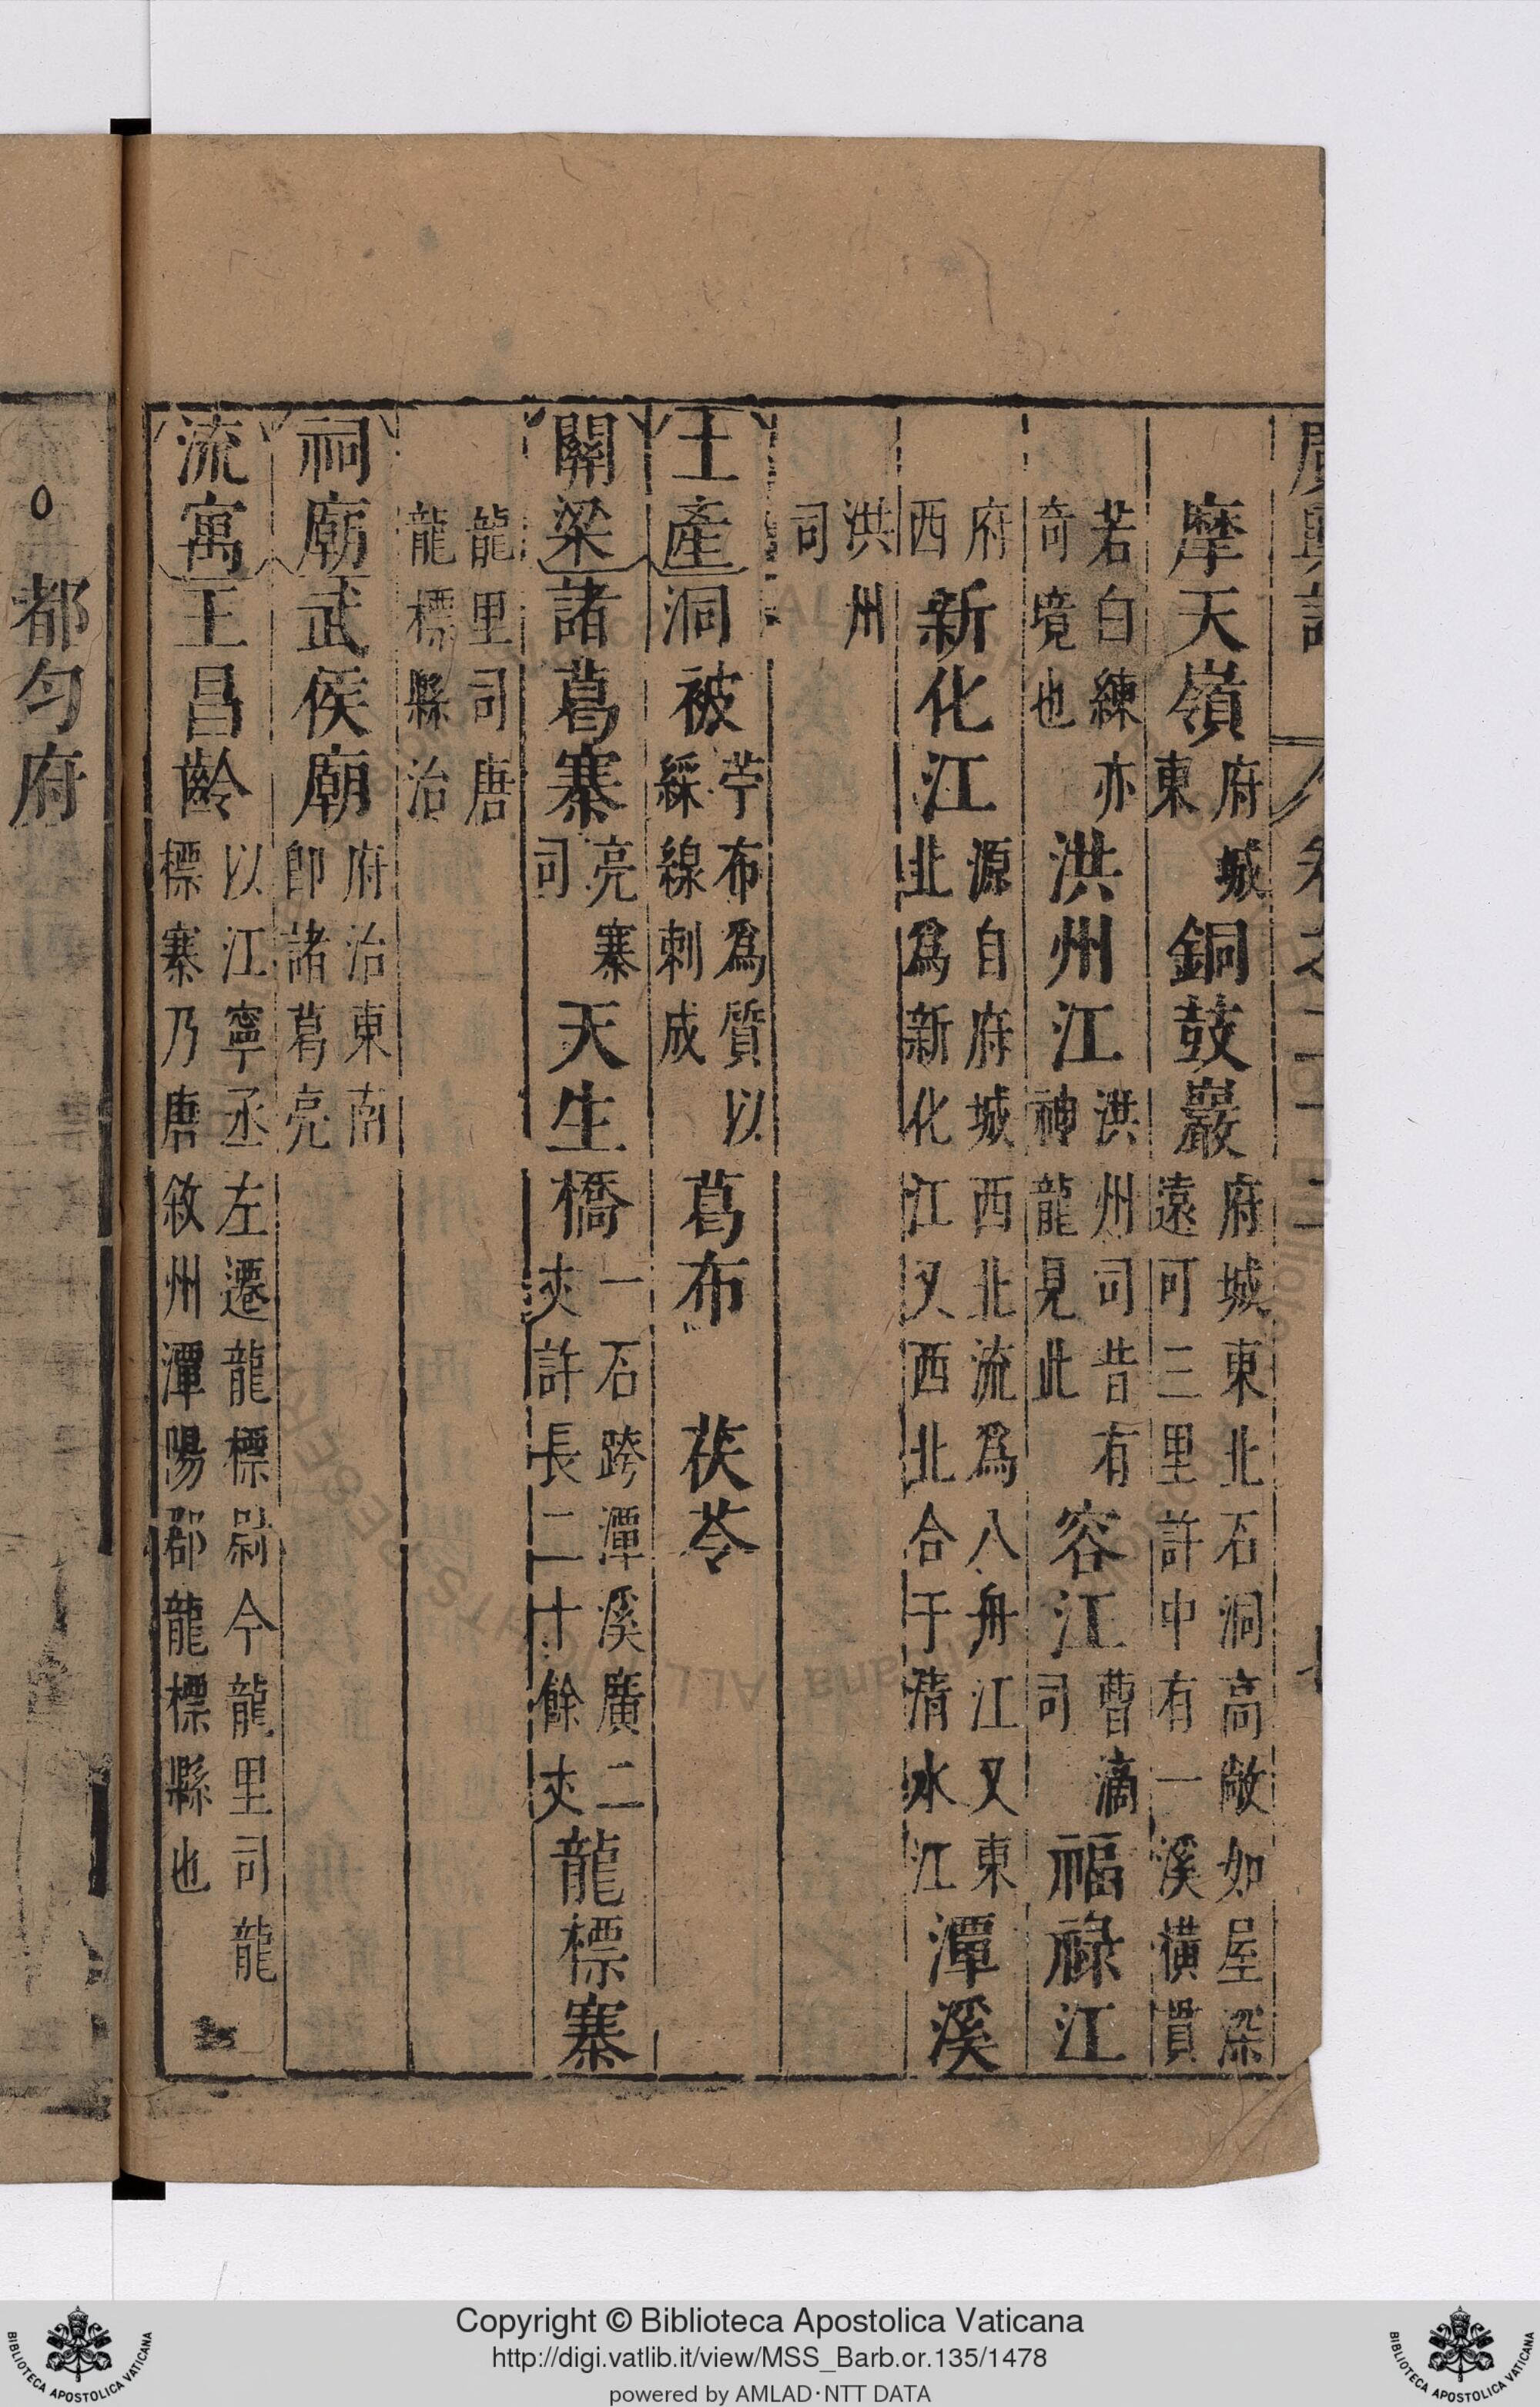 摩天嶺府城東銅鼓巖府城東北石洞高敞如屋深遠可三里許中有一溪橫貫
若白練亦奇境也洪州江洪州司昔有神龍見此容江曹滴司福祿江
府西新化江源自府城西北流爲八舟江又東北爲新化江又西北合于清水江潭溪
洪州司
土產洞被苧布爲質以綵線刺成葛布茯苓
關梁諸葛寨亮寨司天生橋一石跨潭溪廣二丈許長二十餘丈龍標寨
龍里司唐龍標縣治
祠廟武侯廟府治東南卽諸葛亮
流寓王昌齡以江寧丞左遷龍標尉今龍里司龍標寨乃唐敘州潭陽郡龍標縣也
都勻府
Copyright © Biblioteca Apostolica Vaticana
http://digi.vatlib.it/view/MSS_Barb.or.135/1478
powered by AMLAD·NTT DATA
BIBLIOTECA APOSTOLICA VATICANA
BIBLIOTECA APOSTOLICA VATICANA